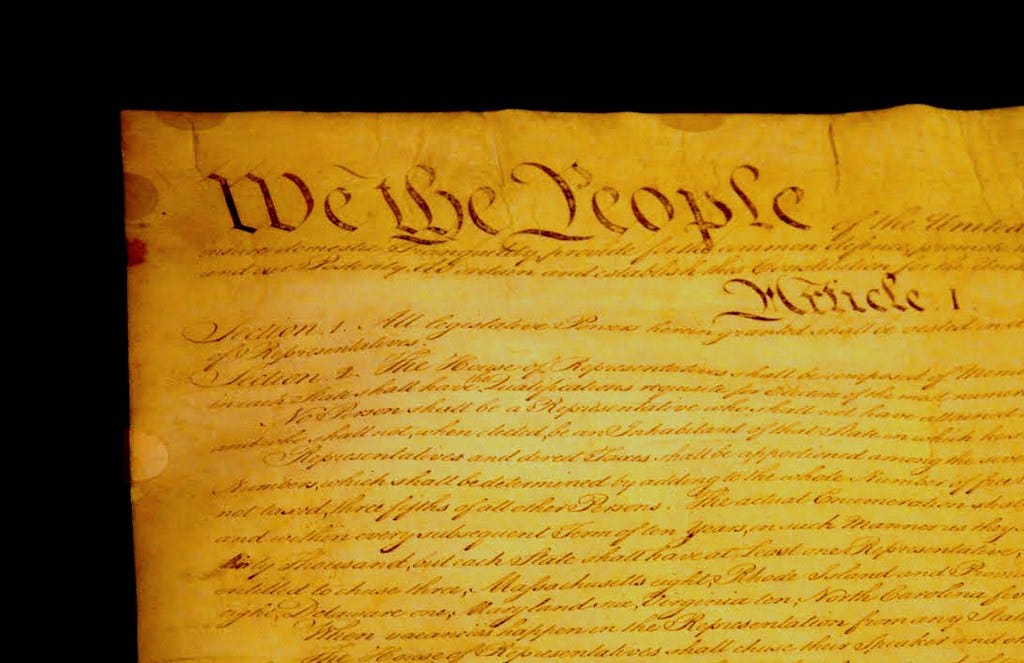 We the People of the United
insure domestic Tranquility, provide for the common defence, promote
and our Posterity, do ordain and establish this Constitution for the
Article. I.
Section. 1. All legislative Powers herein granted shall be vested in a
of Representatives.
Section. 2. The House of Representatives shall be composed of Mem
in each State shall have the Qualifications requisite for Electors of the most numer
No Person shall be a Representative who shall not have attained
and who shall not, when elected, be an Inhabitant of that State in which he s
Representatives and direct Taxes shall be apportioned among the seve
Numbers, which shall be determined by adding to the whole Number of free
not taxed, three fifths of all other Persons. The actual Enumeration sha
and within every subsequent Term of ten Years, in such Manner as they
thirty Thousand, but each State shall have at Least one Representative;
entitled to chuse three, Massachusetts eight, Rhode Island and Provi
eight, Delaware one, Maryland six, Virginia ten, North Carolina five
When vacancies happen in the Representation from any State
The House of Representatives shall chuse their Speaker and